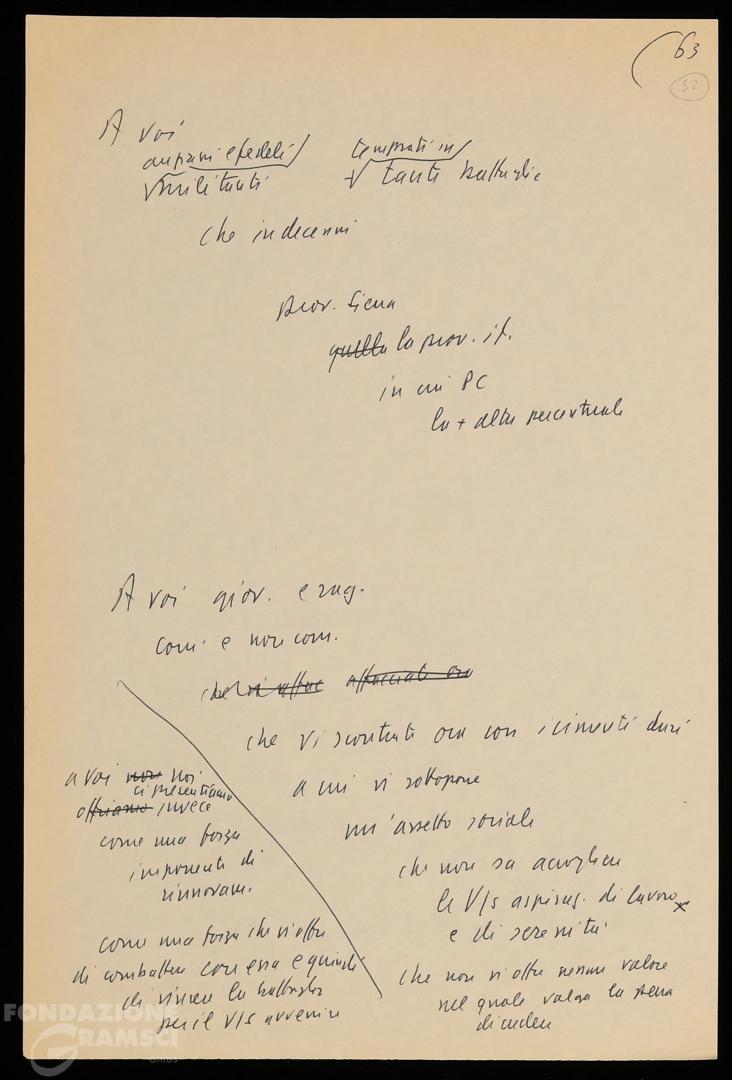 63
52
A voi
anziani e fedeli
militanti
temprati in
tante battaglie
che in decenni
prov. Siena
quella la prov. it.
in cui PC
la + alta percentuale
A voi giov. e rag.
com. e non com.
che vi affac affacciate ora
che vi scontrate ora con i cimenti duri
a cui vi sottopone
un'assetto sociale
che non sa accogliere
le V/s aspiraz. di lavoro
e di serenità
che non vi offre nessun valore
nel quale valga la pena
di credere
a voi non noi
ci presentiamo
offriamo invece
come una forza
imponente di
rinnovam.
come una forza che vi offre
di combattere con essa e quindi
di vincere la battaglia
per il V/s avvenire
FONDAZIONE
GRAMSCI
onlus